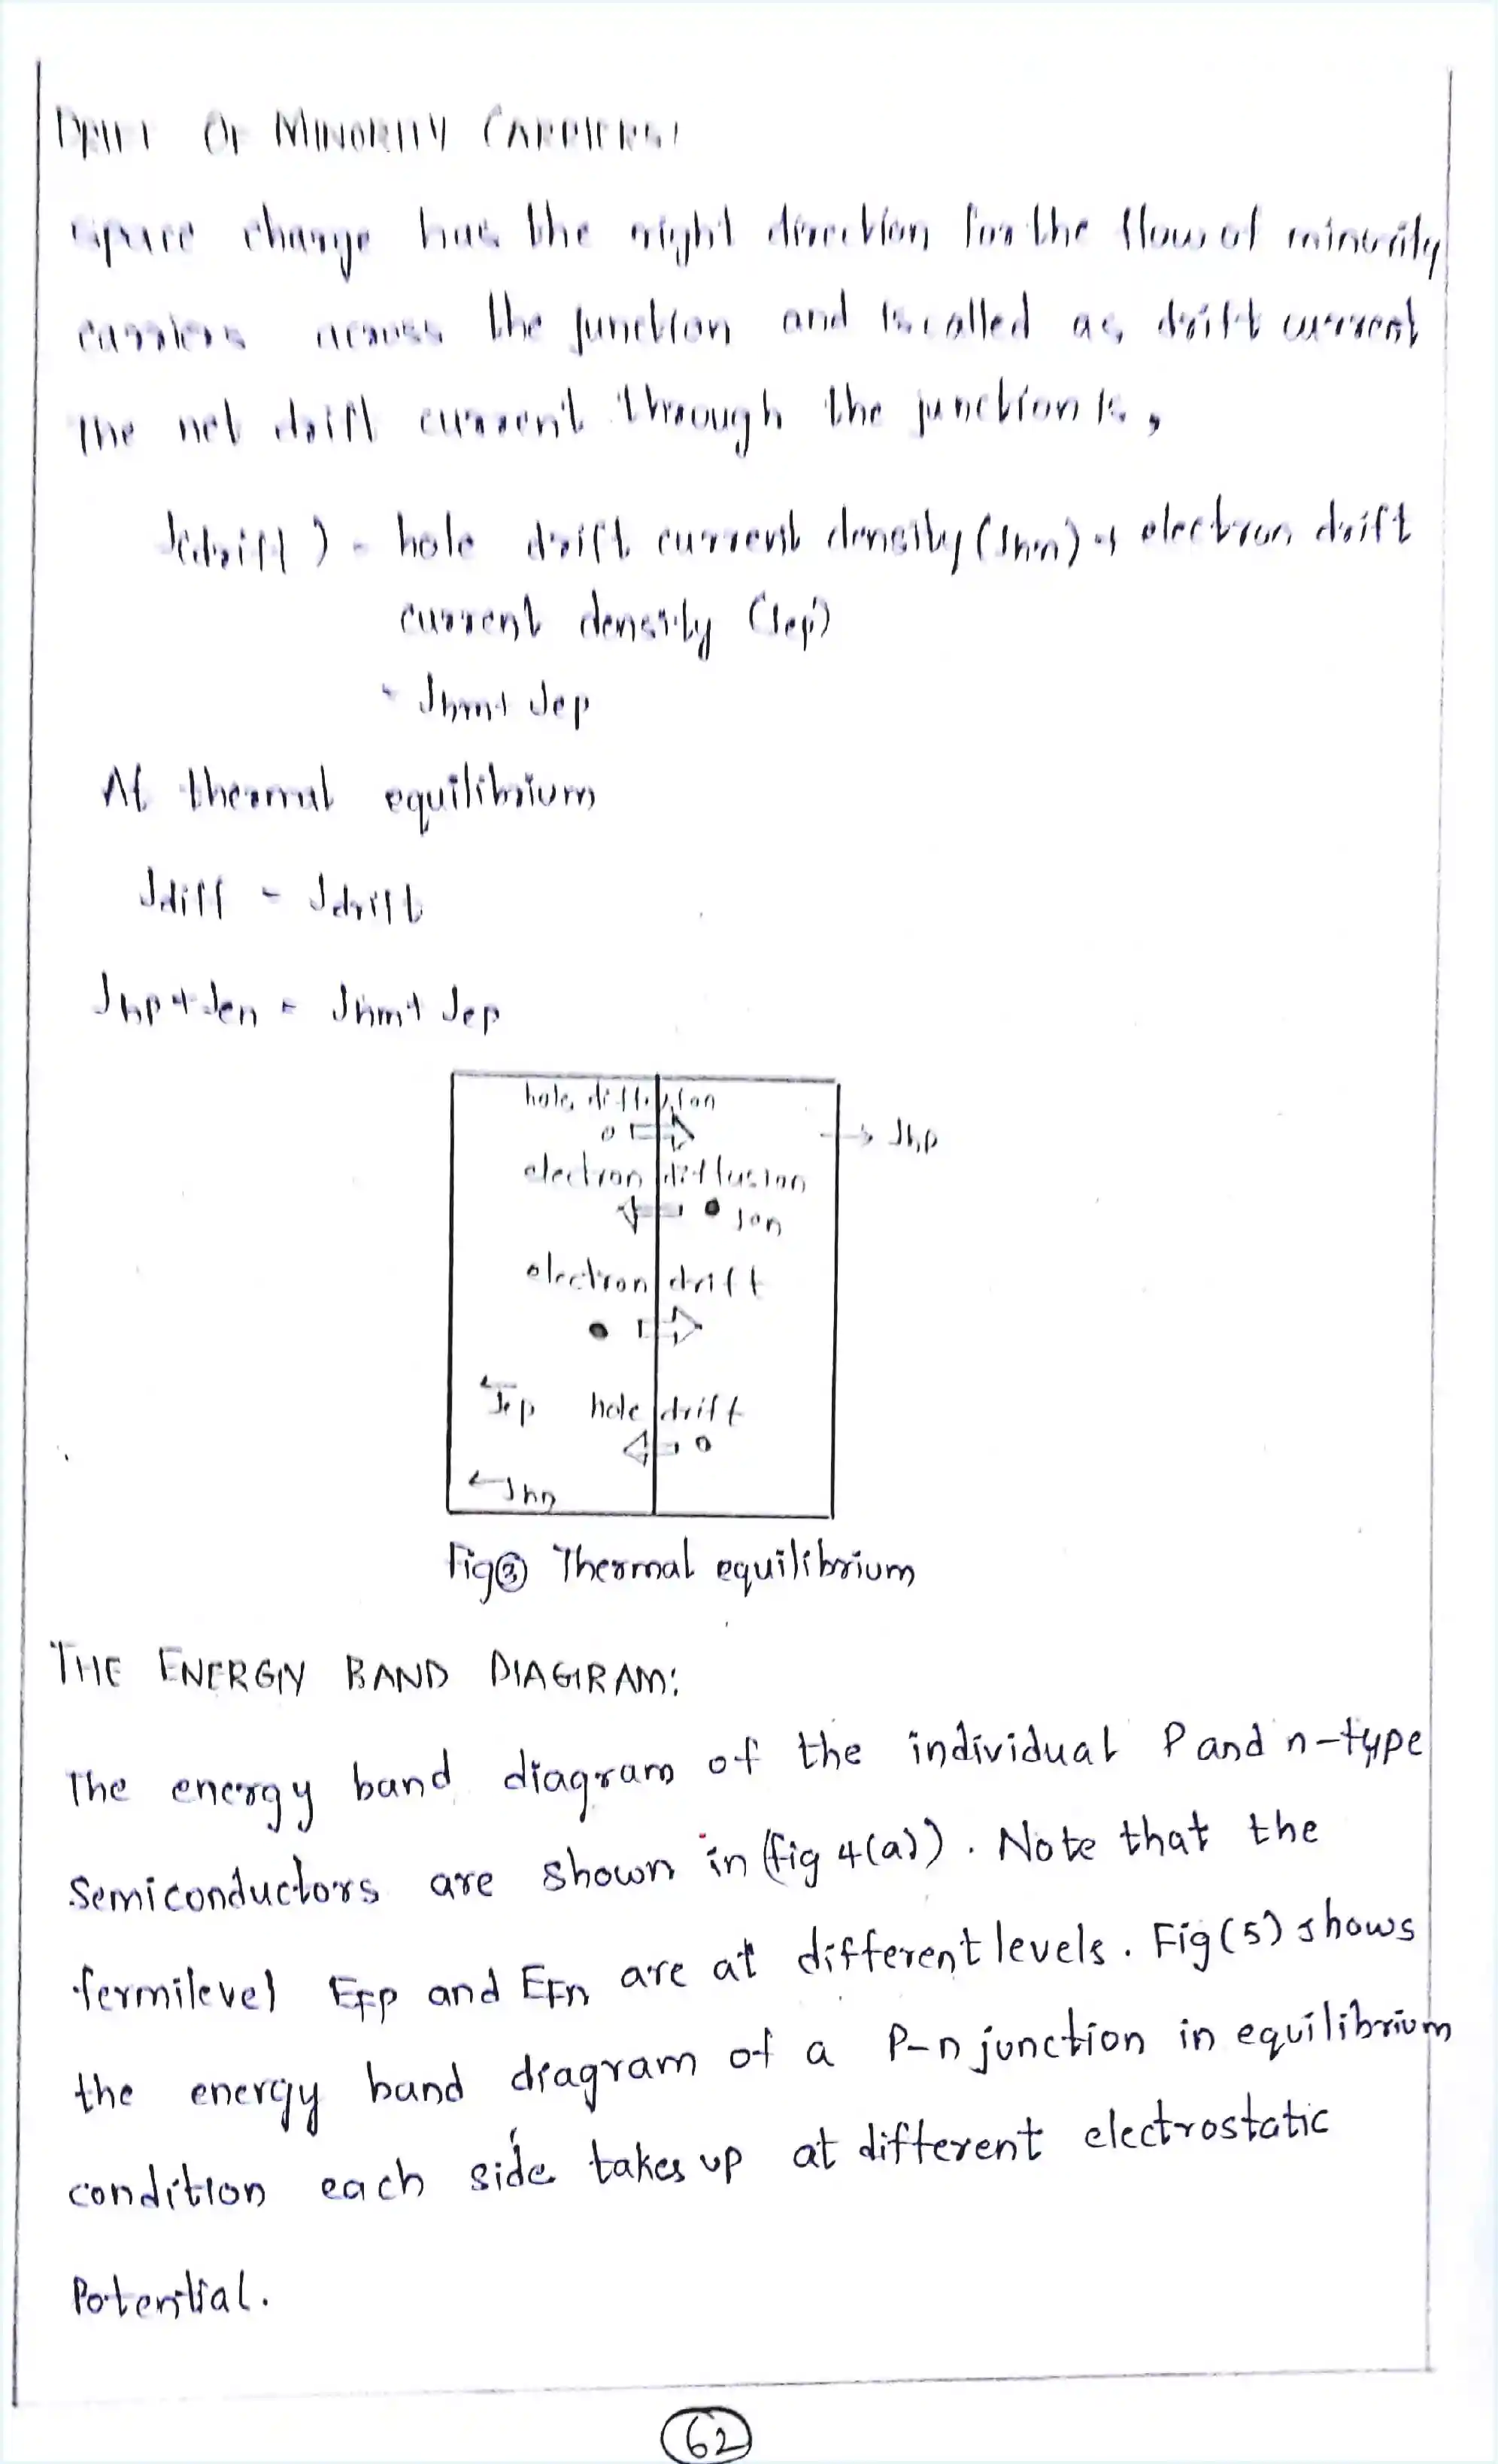 DRIFT OF MINORITY CARRIERS:
space charge has the right direction for the flow of minority
carriers across the junction and is called as drift current
The net drift current through the junction is,
J(drift) = hole drift current density (Jhn) + electron drift
current density (Jep)
= Jhn+ Jep
At thermal equilibrium
Jdiff = Jdrift
Jhp + Jen = Jhn+ Jep
hole diffusion
→ Jhp
electron diffusion
Jen
electron drift
←Jep hole drift
←Jhn
Fig③ Thermal equilibrium
THE ENERGY BAND DIAGRAM:
The energy band diagram of the individual P and n-type
Semiconductors are shown in (fig 4(a)). Note that the
fermilevel EFp and EFn are at different levels. Fig(5) shows
the energy band diagram of a P-n junction in equilibrium
condition each side takes up at different electrostatic
Potential.
62